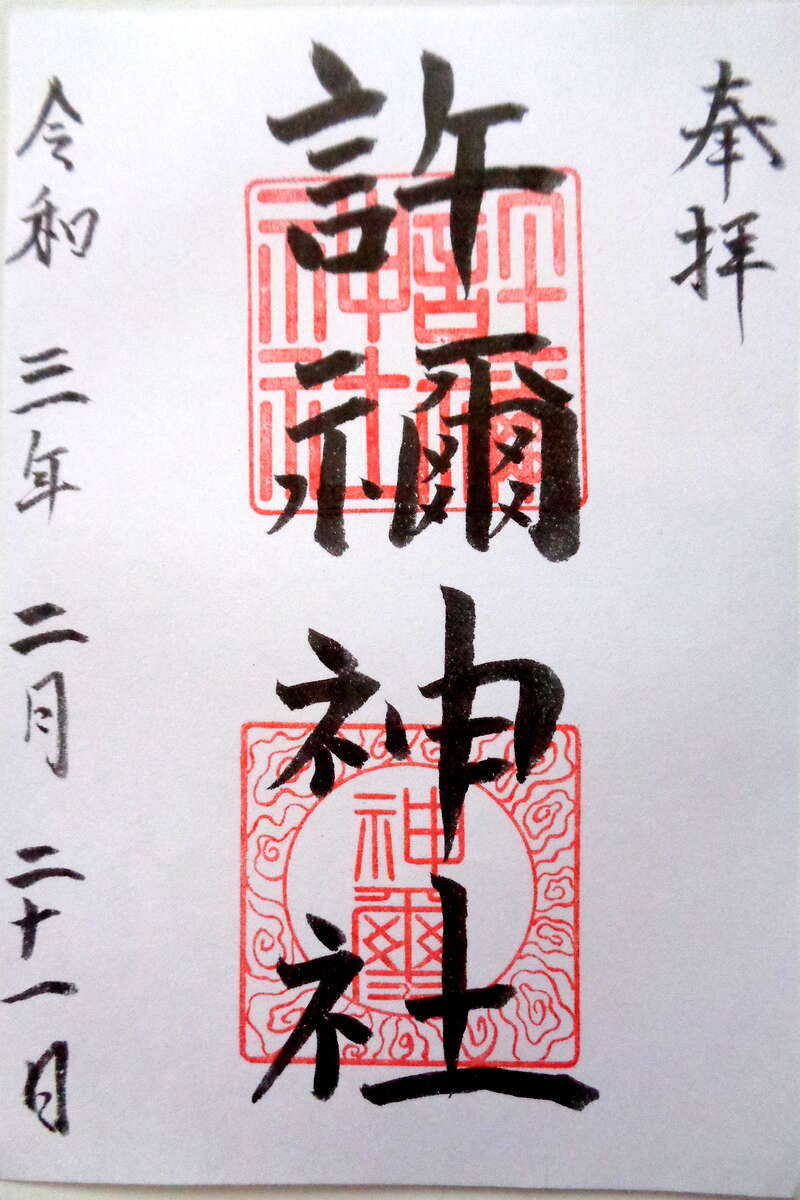 奉拝
許禰神社
許禰神社
神璽
令和三年二月二十一日